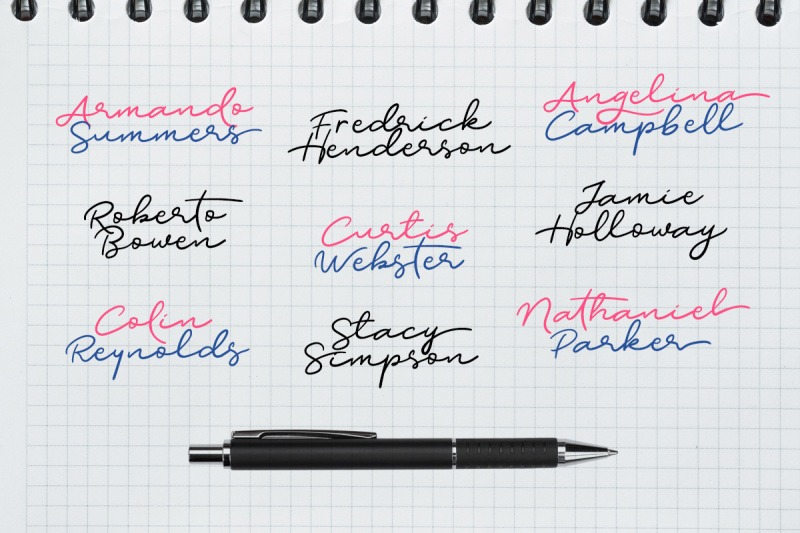 Armando
Summers
Fredrick
Henderson
Angelina
Campbell
Roberto
Bowen
Curtis
Webster
Jamie
Holloway
Colin
Reynolds
Stacy
Simpson
Nathaniel
Parker